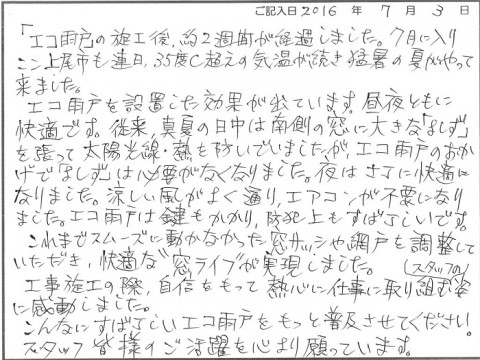 ご記入日 2016 年 7 月 3 日
「エコ雨戸の施工後、約2週間が経過しました。7月に入り
ここ上尾市も連日、35度C超えの気温が続き猛暑の夏がやって
来ました。
エコ雨戸を設置した効果が出ています。昼夜ともに
快適です。従来、真夏の日中は南側の窓に大きな「よしず」
を張って太陽光線・熱を防いでいましたが、エコ雨戸のおか
げで「よしず」は必要がなくなりました。夜はさらに快適に
なりました。涼しい風がよく通り、エアコンが不要になり
ました。エコ雨戸は鍵もかかり、防犯上もすばらしいです。
これまでスムーズに動かなかった窓サッシや網戸を調整して
いただき、快適な“窓ライフ”が実現しました。(スタッフの)
工事施工の際、自信をもって熱心に仕事に取り組む姿
に感動しました。
こんなにすばらしいエコ雨戸をもっと普及させてください。
スタッフ皆様のご活躍を心より願っています。